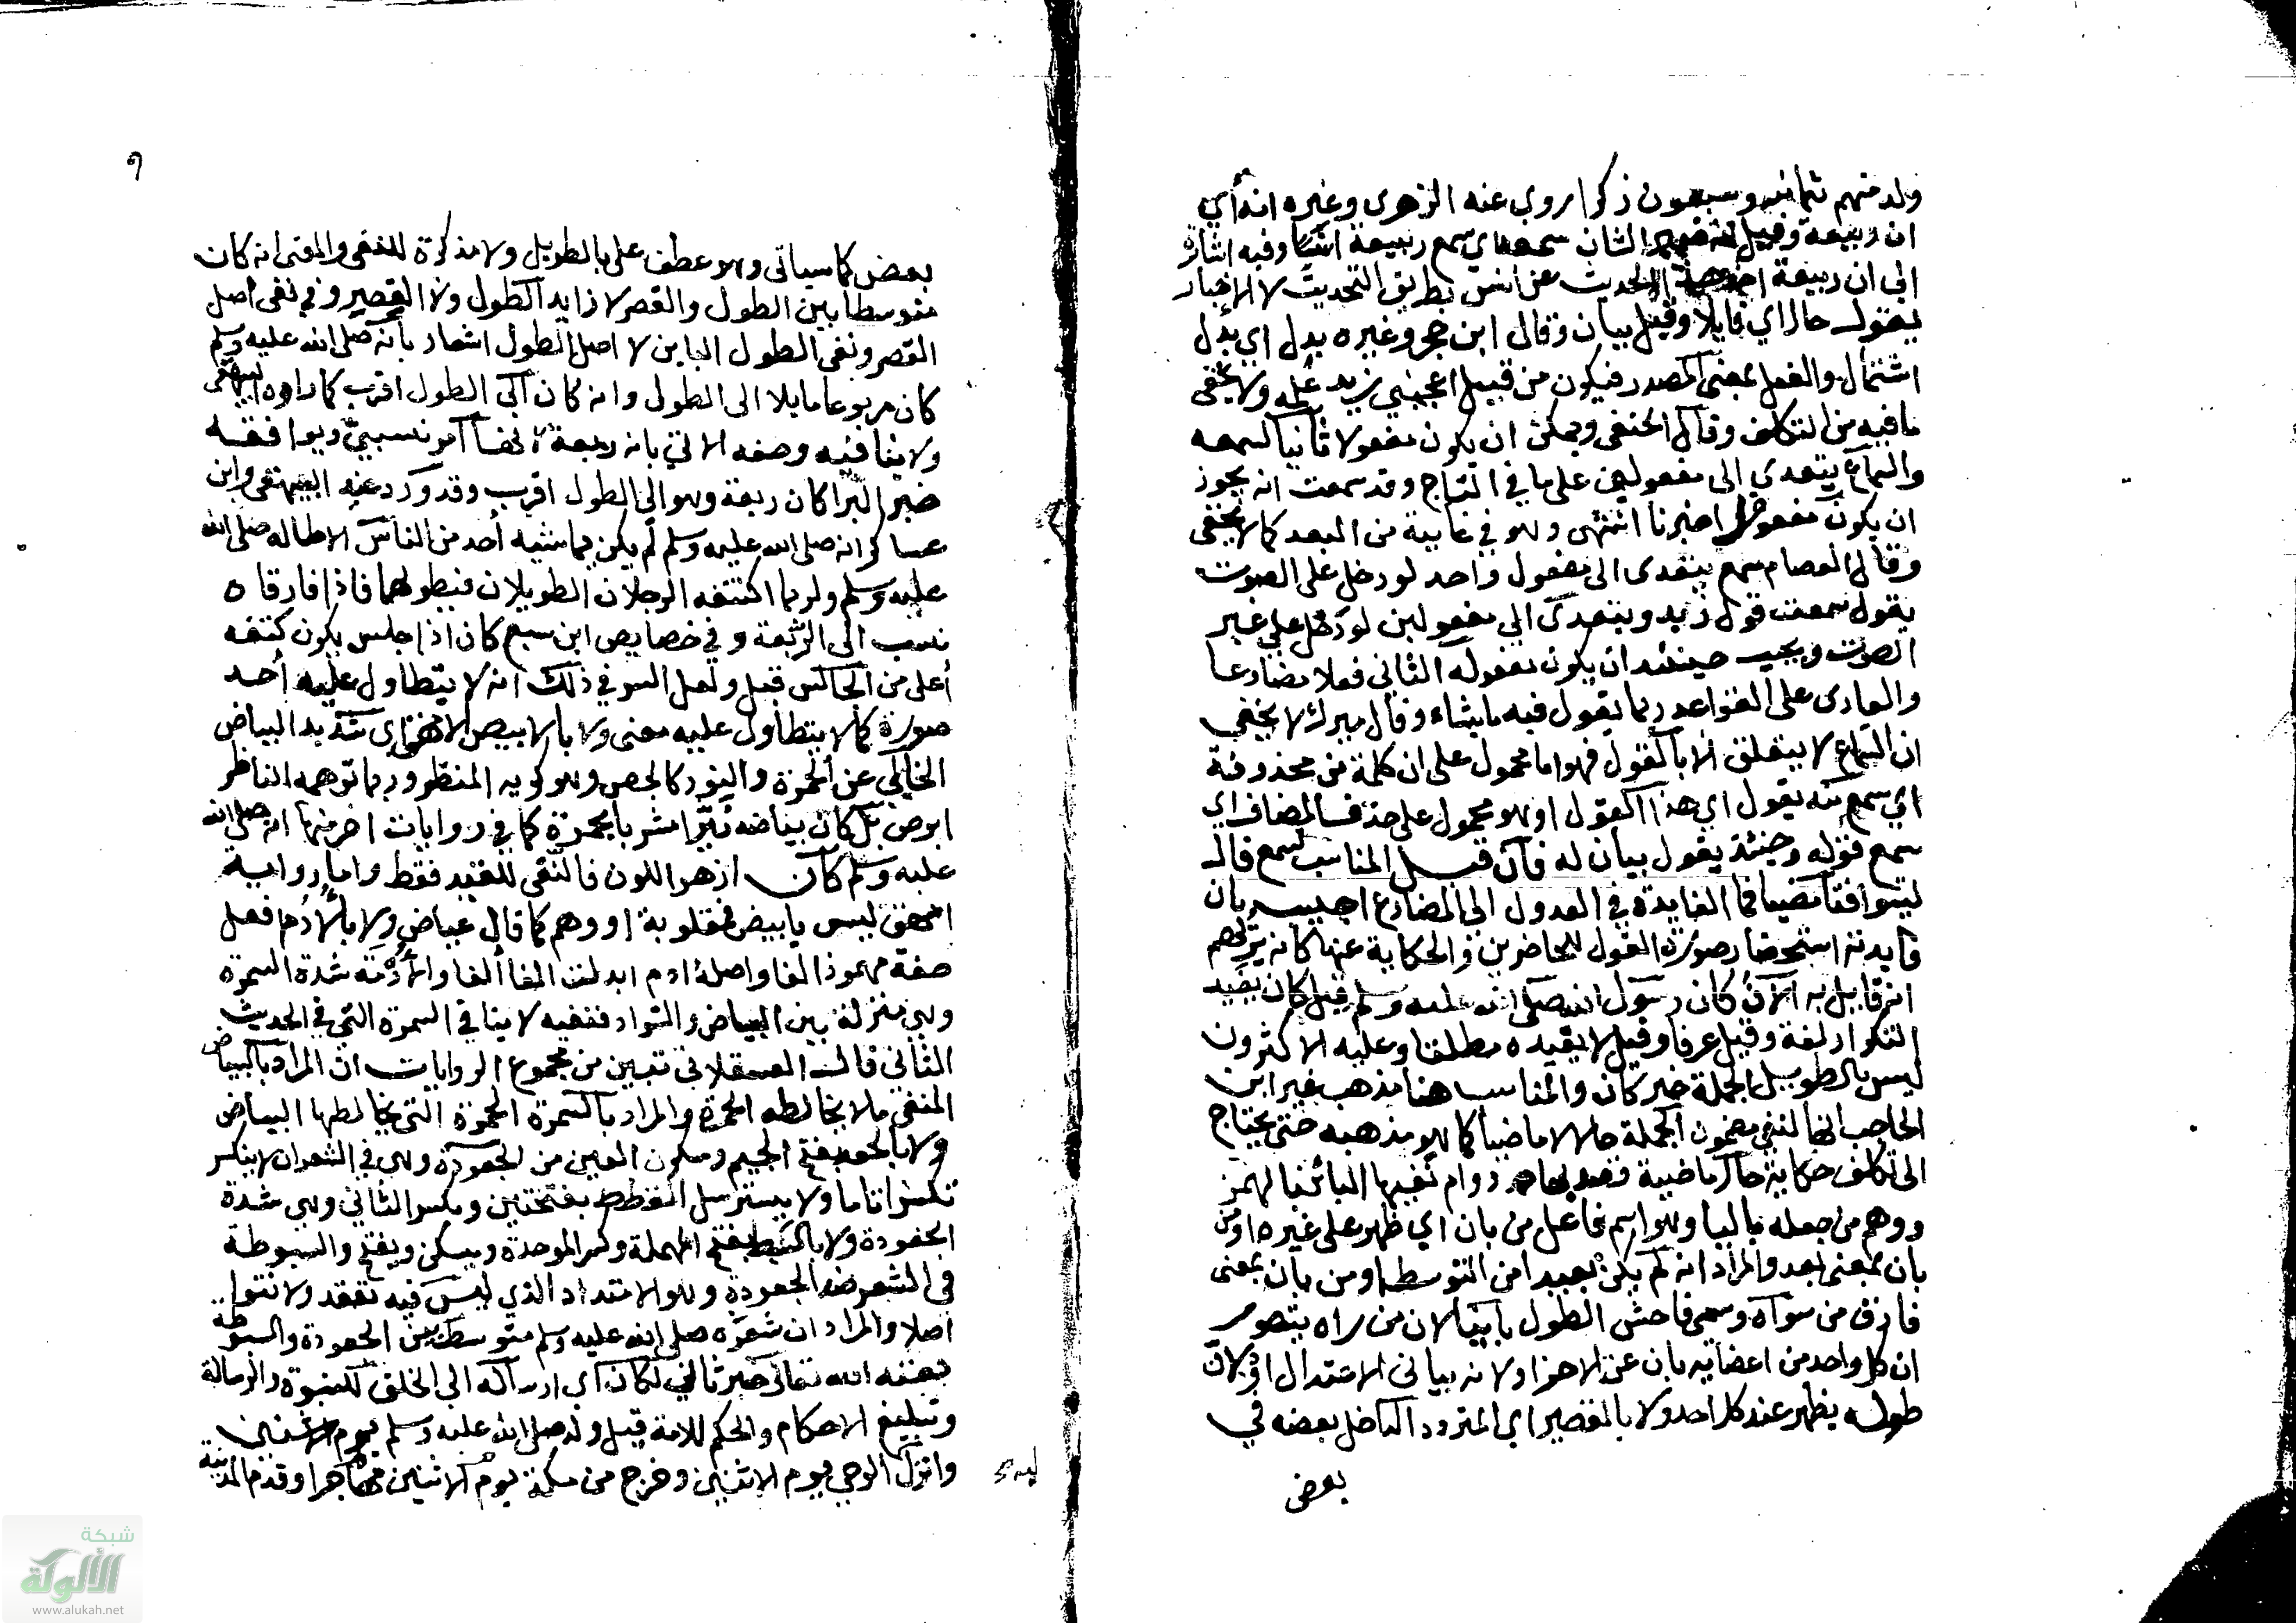 ولد منهم ثمانية وسبعون ذكرا روى عنه الزهرى وغيره انه أي
ان ربيعة وقيل انه ضمير الشان سمعه اي سمع ربيعة انسا وفيه اشارة
الى ان ربيعة اخذ هذا الحديث عن انس بطريق التحديث لا الاخبار
يقول حال اي قايلا وقيل بيان وقال ابن حجر وغيره بدل اي بدل
اشتمال والفعل بمعنى المصدر فيكون من قبيل اعجبني زيد علمه ولا يخفى
ما فيه من التكلف وقال الحنفي ويمكن ان يكون مفعولا ثانيا لسمعه
والسماع يتعدي الى مفعولين على ما في التاج وقد سمعت انه يجوز
ان يكون مفعول اخبرنا انتهى وهو في غاية من البعد كما لا يخفى
وقال العصام سمع يتعدى الى مفعول واحد لو دخل على الصوت
يقول سمعت قول زيد ويتعدى الى مفعولين لو دخل على غير
الصوت ويجب حينئذ ان يكون مفعوله الثاني فعلا مضارعا
والعارى على القواعد ربما يقول فيه ما يشاء وقال ميرك لا يخفي
ان السماع لا يتعلق الا بالقول فهو اما محمول على ان كلمة من محذوفة
اي سمع منه يقول اي هذا القول او هو محمول على حذف المضاف اي
سمع قوله وحينئذ يقول بيان له فان قيل المناسب لسمع قال
ليتوافقا مضيا فما الفايدة في العدول الى المضارع اجيب بان
فايدته استحضار صورة القول للحاضرين والحكاية عنها كانه يريهم
انه قايل به الآن كان رسول الله صلى الله عليه وسلم قيل كان يفيد
التكرار لغة وقيل عرفا وقيل لا يفيده مطلقا وعليه الاكثرون
ليس بالطويل الجملة خبر كان والمناسب هنا مذهب غير ابن
الحاجب انها لنفي مضمون الجملة حالا لا ماضيا كما هو مذهبه حتى يحتاج
الى تكلف حكاية حال ماضية دوام نفيها البائن بالهمز
ووهم من جعله باليا وهو اسم فاعل من بان اي ظهر على غيره او من
بان بمعنى بعد والمراد انه لم يكن بعيدا من التوسط او من بان بمعنى
فارق من سواه وسمى فاحش الطول باينا لان من راه يتصور
ان كل واحد من اعضائه بان عن الاخر او لانه بيانى الاعتدال او لان
طوله يظهر عند كل احد ولا بالقصير اي المتردد الداخل بعضه في
بعض
٩
بعض كما سياتى وهو عطف على بالطويل ولا مذكرة للنفى والمعنى انه كان
متوسطا بين الطول والقصر لا زايد الطول ولا القصير وفي نفى اصل
القصر ونفى الطول الباين لا اصل الطول اشعار بانه صلى الله عليه وسلم
كان مربوعا مايلا الى الطول وانه كان الى الطول اقرب كما رواه البيهقى
ولا ينافيه وصفه الاتي بانه ربعة لانها امر نسبي ويوافقه
خبر البرا كان ربعة وهو الى الطول اقرب وقد ورد عند البيهقى وابن
عساكر انه صلى الله عليه وسلم لم يكن يماشيه احد من الناس الا طاله صلى الله
عليه وسلم ولربما اكتنفه الرجلان الطويلان فيطولهما فاذا فارقاه
نسب الى الربعة وفي خصايص ابن سبع كان اذا جلس يكون كتفه
أعلى من الجالس قيل ولعل السر في ذلك انه لا يتطاول عليه احد
صورة كما لا يتطاول عليه معنى ولا بالابيض الامهق اى شديد البياض
الخالي عن الحمرة والنور كالجص وهو كريه المنظر وربما توهمه الناظر
ابرص بل كان بياضه نيرا مشربا بحمرة كما في روايات اخر منها انه صلى الله
عليه وسلم كان ازهر اللون فالنفى للقيد فقط واما رواية
امهق ليس بابيض فمقلوبة او وهم كما قال عياض ولا بالآدم افعل
صفة مهموز الفا واصله اادم ابدلت الفا الفا والأدمة شدة السمرة
وهي منزلة بين البياض والسواد فنفيه لا ينافي السمرة التي في الحديث
الثاني قال العسقلانى تبين من مجموع الروايات ان المراد بالبياض
المنفى ما لا يخالطه الحمرة والمراد بالسمرة الحمرة التى يخالطها البياض
ولا بالجعد بفتح الجيم وسكون العين من الجعودة وهي في الشعر ان لا يتكسر
تكسرا تاما ولا يسترسل القطط بفتحتين وبكسر الثاني وهي شدة
الجعودة ولا بالسبط بفتح المهملة وكسر الموحدة ويسكن ويفتح والسبوطة
في الشعر ضد الجعودة وهو الامتداد الذي ليس فيه تعقد ولا نتوا
اصلا والمراد ان شعره صلى الله عليه وسلم متوسط بين الجعودة والسبوطة
بعثه الله تعالى خبر ثاني لكان اي ارسله الى الخلق للنبوة والرسالة
وتبليغ الاحكام والحكم للامة قيل ولد صلى الله عليه وسلم يوم الاثنين
وانزل الوحي يوم الاثنين وخرج من مكة يوم الاثنين مهاجرا وقدم المدينة
شبكة
الألوكة
www.alukah.net